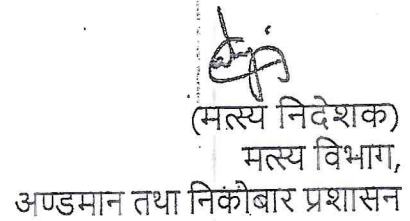 (मत्स्य निदेशक)
मत्स्य विभाग,
अण्डमान तथा निकोबार प्रशासन